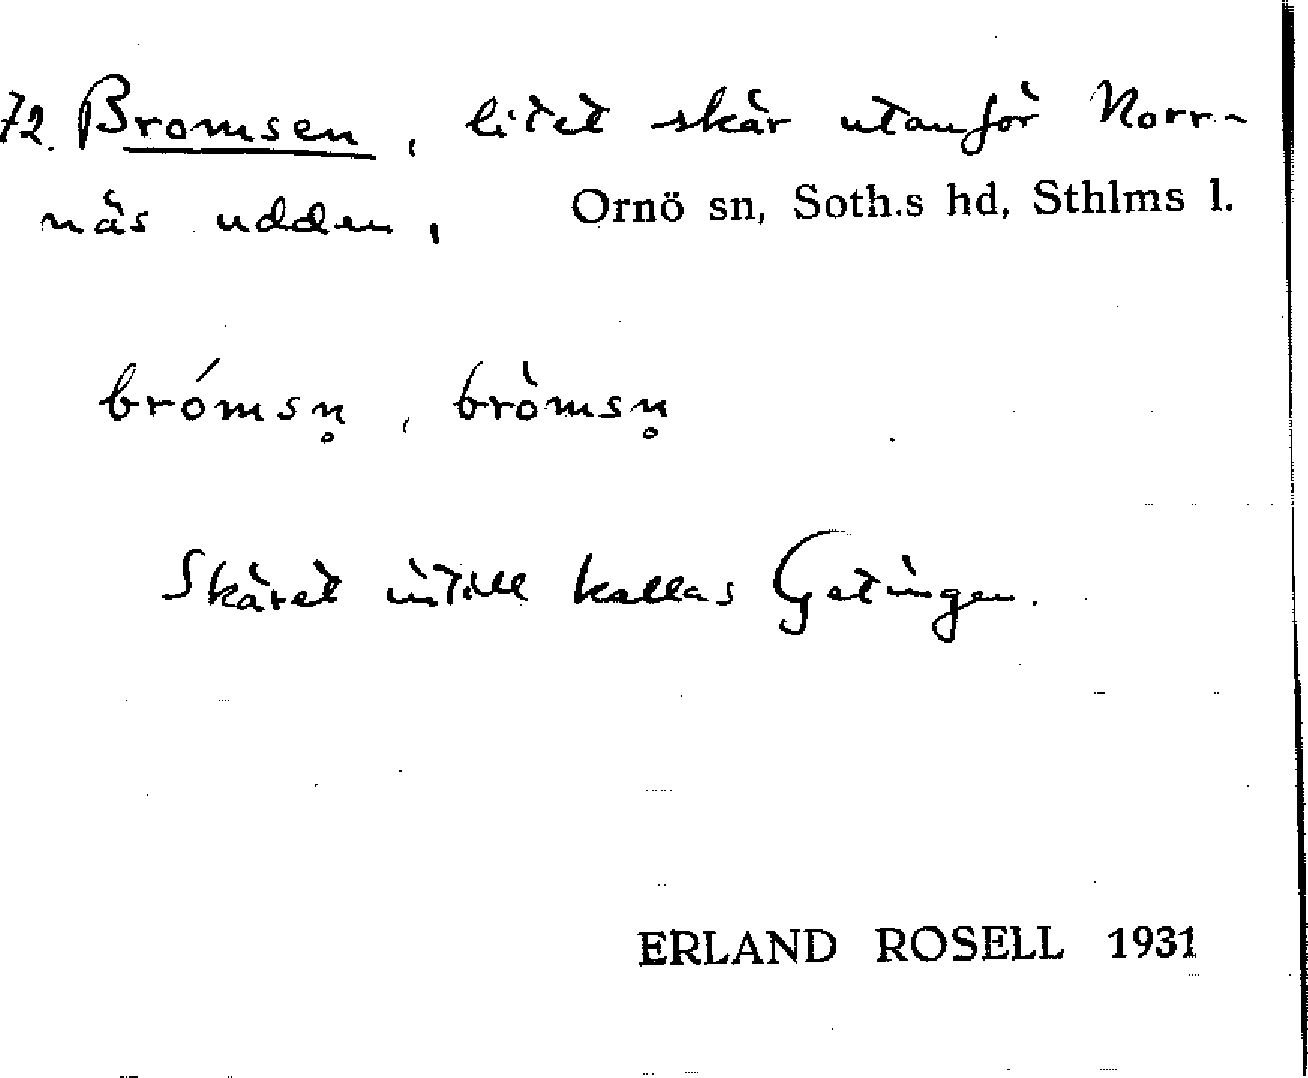 72. Bromsen, litet skär utanför Norr-
näs udden, Ornö sn, Soth.s hd, Sthlms l.
brómsn̥, bròmsn̥
Skäret intill kallas Getingen.
ERLAND ROSELL 1931